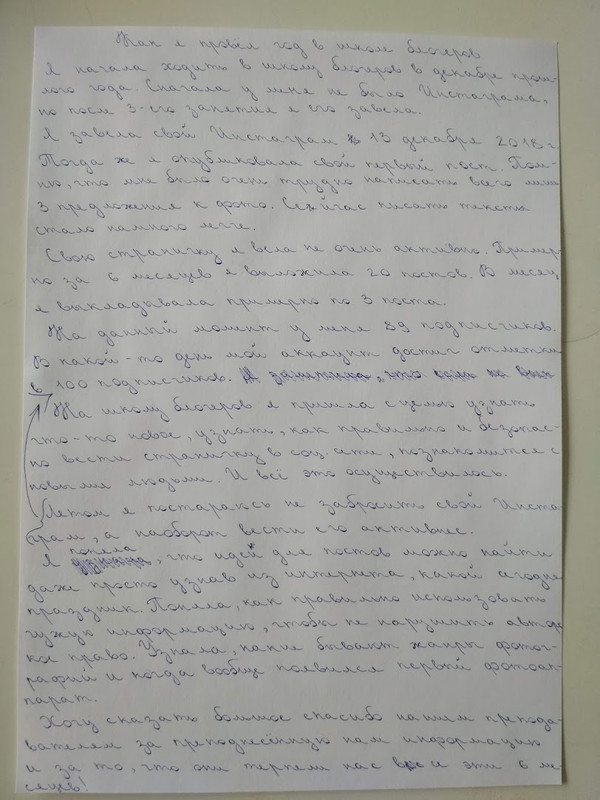 Как я провёл год в школе блогеров
Я начала ходить в школу блогеров в декабре прош-
лого года. Сначала у меня не было Инстаграма,
но после 3-его занятия я его завела.
Я завела свой Инстаграм 13 декабря 2018 г.
Тогда же я опубликовала свой первый пост. Пом-
ню, что мне было очень трудно написать всего лишь
3 предложения к фото. Сейчас писать тексты
стало намного легче.
Свою страничку я вела не очень активно. Пример-
но за 6 месяцев я выложила 20 постов. В месяц
я выкладывала примерно по 3 поста.
На данный момент у меня 89 подписчиков.
В какой-то день мой аккаунт достиг отметки
в 100 подписчиков.
На школу блогеров я пришла с целью узнать
что-то новое, узнать, как правильно и безопас-
но вести страничку в соц. сети, познакомится с
новыми людьми. И всё это осуществилось.
Летом я постараюсь не забросить свой Инста-
грам, а наоборот вести его активнее.
Я поняла, что идей для постов можно найти
даже просто узнав из интернета, какой сегодня
праздник. Поняла, как правильно использовать
чужую информацию, чтобы не нарушить автор
кое право. Узнала, какие бывают жанры фотог-
рафий и когда вообще появился первый фотоап-
парат.
Хочу сказать большое спасибо нашим препода-
вателям за преподнесённую нам информацию
и за то, что они терпели нас все эти 6 ме-
сяцев!